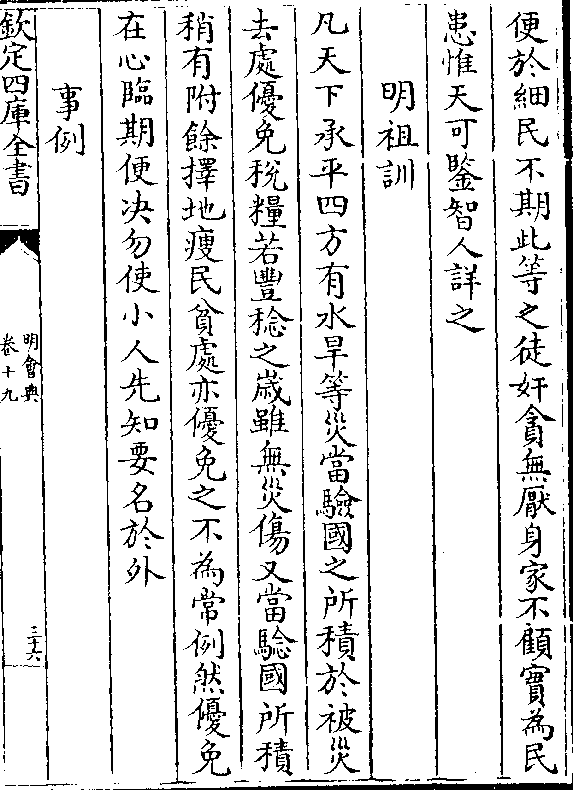 便於細民不期此等之徒奸貪無厭身家不顧實為民
患惟天可鑒智人詳之
明祖訓
凡天下承平四方有水旱等災當驗國之所積於被災
去處優免稅糧若豐稔之歲雖無災傷又當驗國所積
稍有附餘擇地瘦民貧處亦優免之不為常例然優免
在心臨期便决勿使小人先知要名於外
事例
欽定四庫全書
明會典
卷十九
三十六